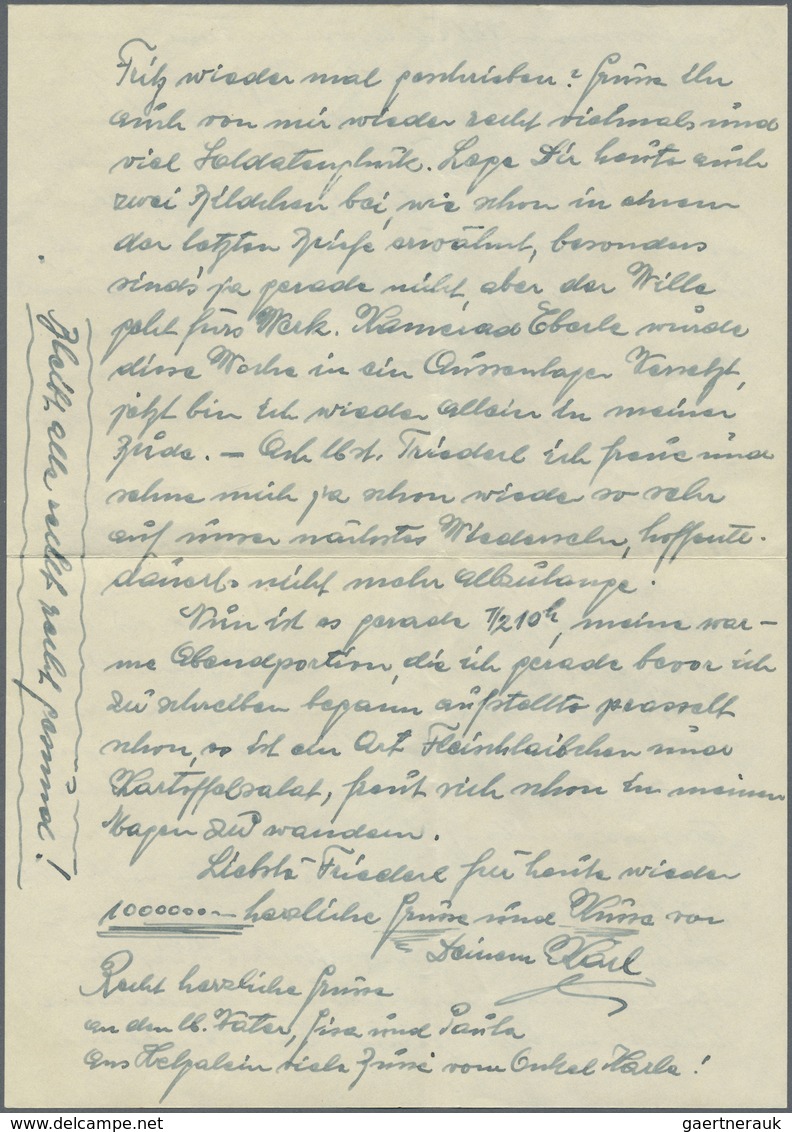 Fritz wieder mal geschrieben? Grüsse ihn
auch von mir wieder recht vielmals und
viel Soldatenglück. Lege Dir heute auch
zwei Bildchen bei, wie schon in einem
der letzten Briefe erwähnt, besonders
sind's ja gerade nicht, aber der Wille
geht fürs Werk. Kamerad Eberle wurde
diese Woche in ein Aussenlager versetzt,
jetzt bin ich wieder allein in meiner
Bude. – Ach lbst. Friederl ich freue und
sehne mich ja schon wieder so sehr
auf unser nächstes Wiedersehn, hoffentl.
dauerts nicht mehr allzulange.
Nun ist es gerade 1/210h, meine war-
me Abendportion, die ich gerade bevor ich
zu schreiben begann aufstellte prasselt
schon, es ist ein Art Fleischlaibchen und
Kartoffelsalat, freut sich schon in meinen
Magen zu wandern.
Liebste Friederl für heute wieder
1000000.– herzliche Grüsse und Küsse von
Deinem Karl
Recht herzliche Grüsse
an den lb. Vater, Gisa und Paula
ans viele Bussi vom Onkel Karle!
Bleibt alle recht recht gesund!
gaertnerauk